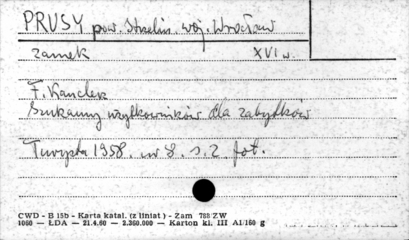 PRUSY pow. Strzelin. woj. Wrocław
zamek XVI w.
F. Kanclerz
Szukamy użytkowników dla zabytków
Turysta 1958. nr 8. s. 2 fot.
CWD - B 15b - Karta katal. (z liniat) - Zam 788 ZW
1060 — ŁDA — 21.4.60 — 2.260.000 — Karton kl. III A1/160 g